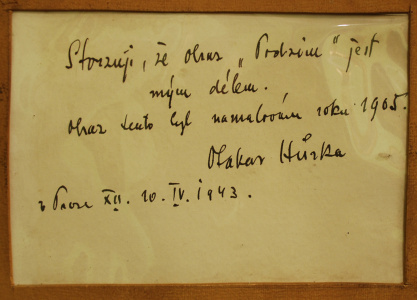 Stvrzuji, že obraz „Podzim“ jest
mým dílem.
obraz tento byl namalován roku 1905.
Otakar Hůrka
v Praze XII. 10. IV. 1943.